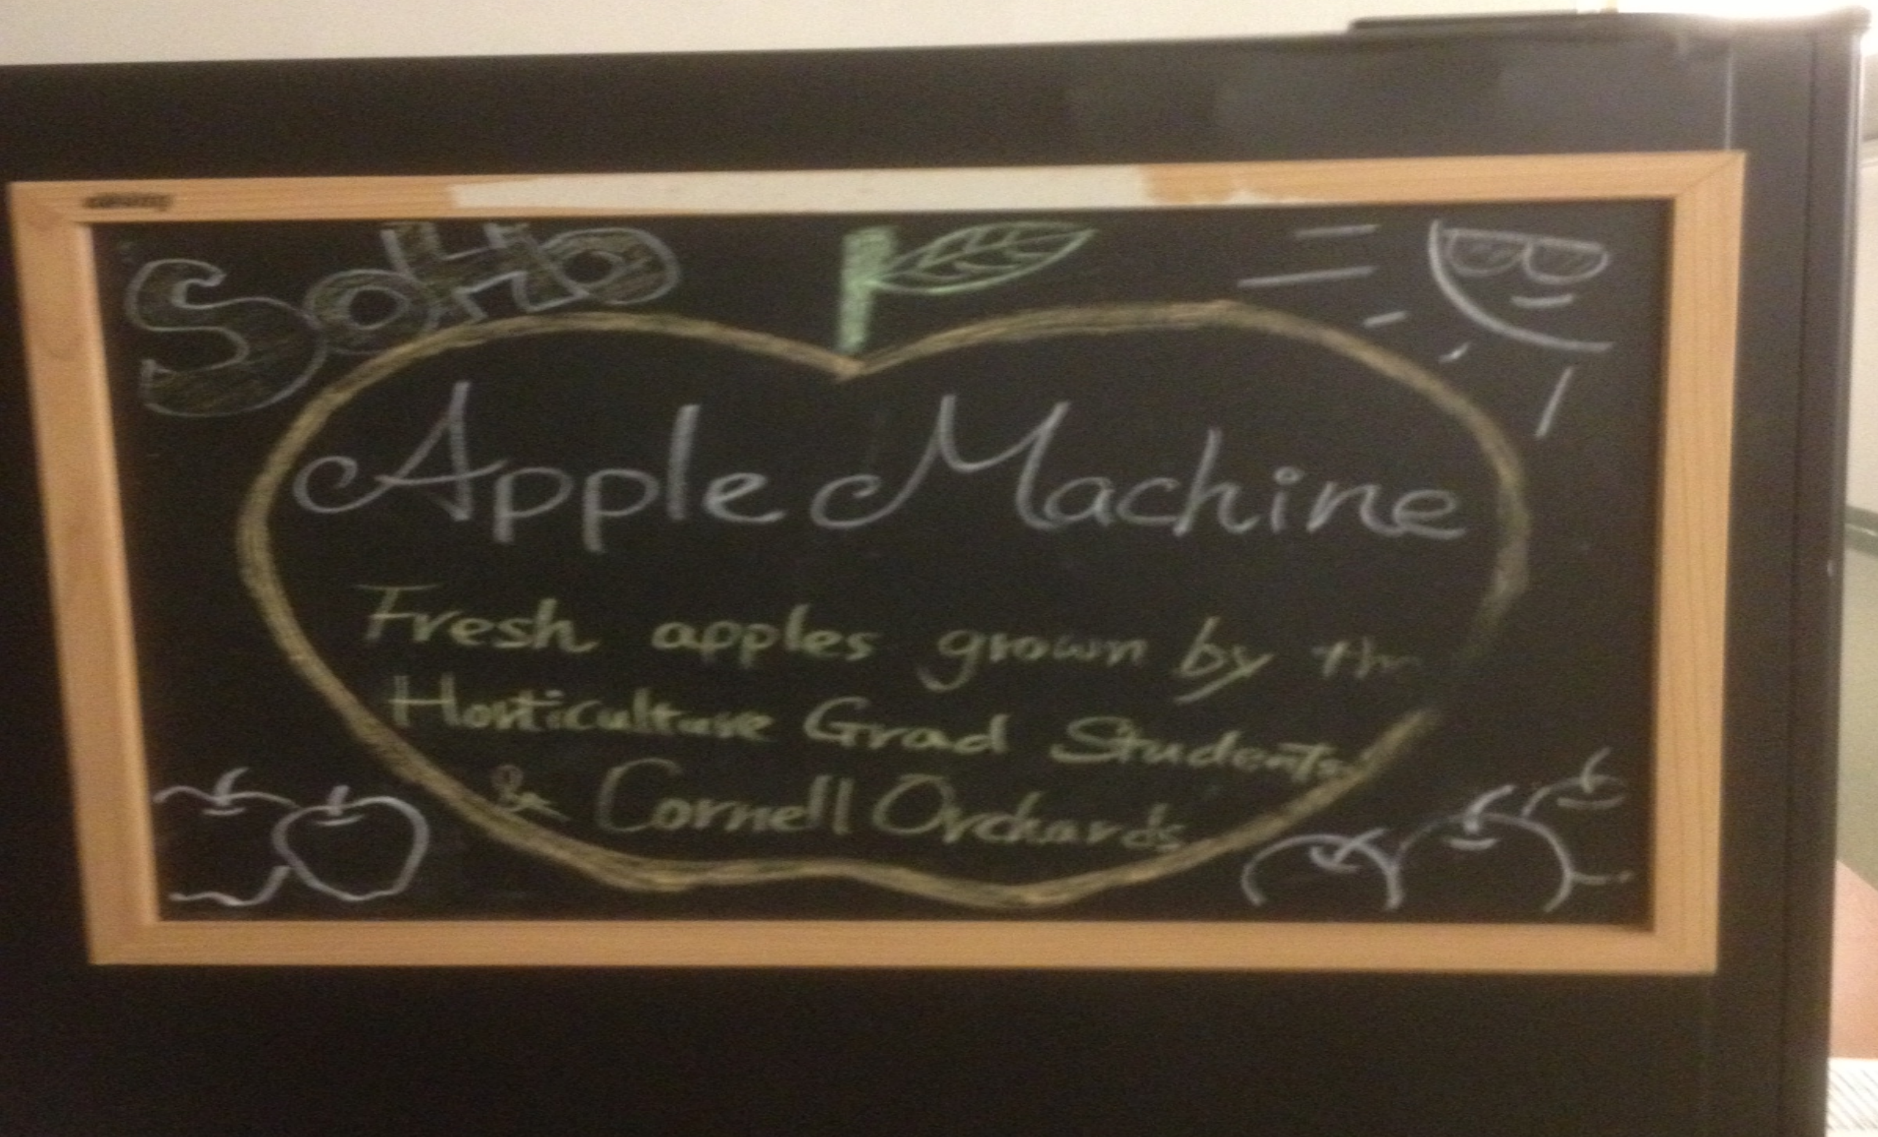 SoHo
Apple Machine
Fresh apples grown by the
Horticulture Grad Students
& Cornell Orchards